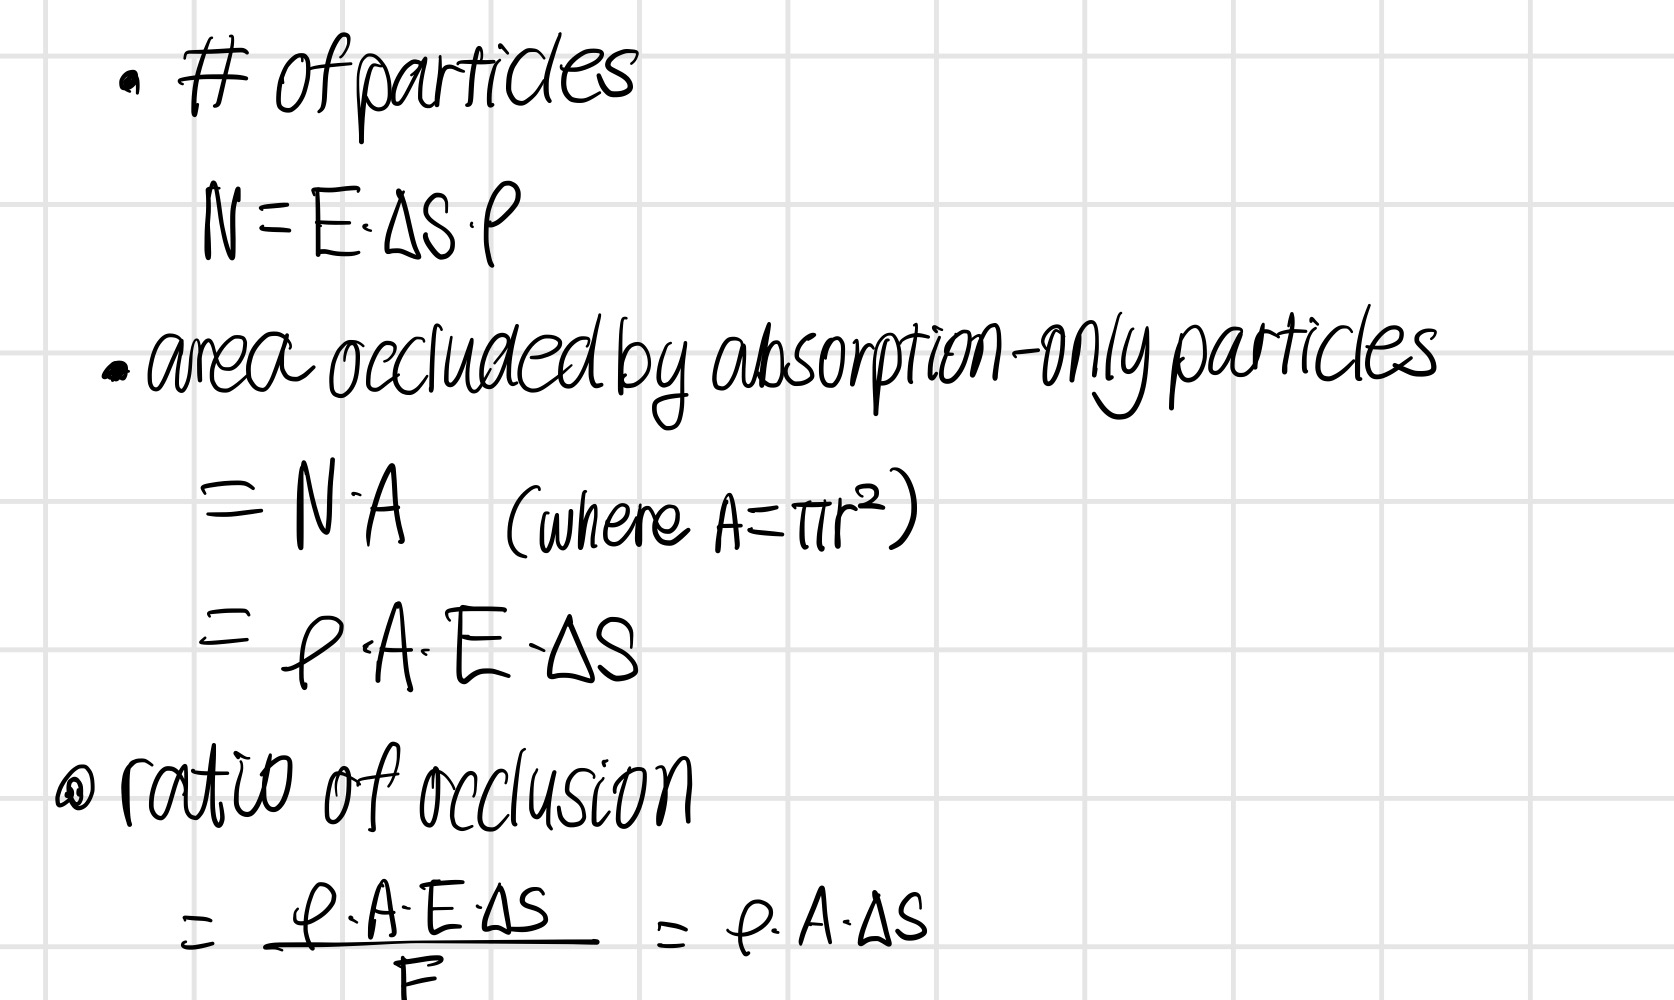 • # of particles
N = E · Δs · ρ
• area occluded by absorption-only particles
= N · A (where A = πr²)
= ρ · A · E · Δs
• ratio of occlusion
= ρ · A · E · Δs / E = ρ · A · Δs